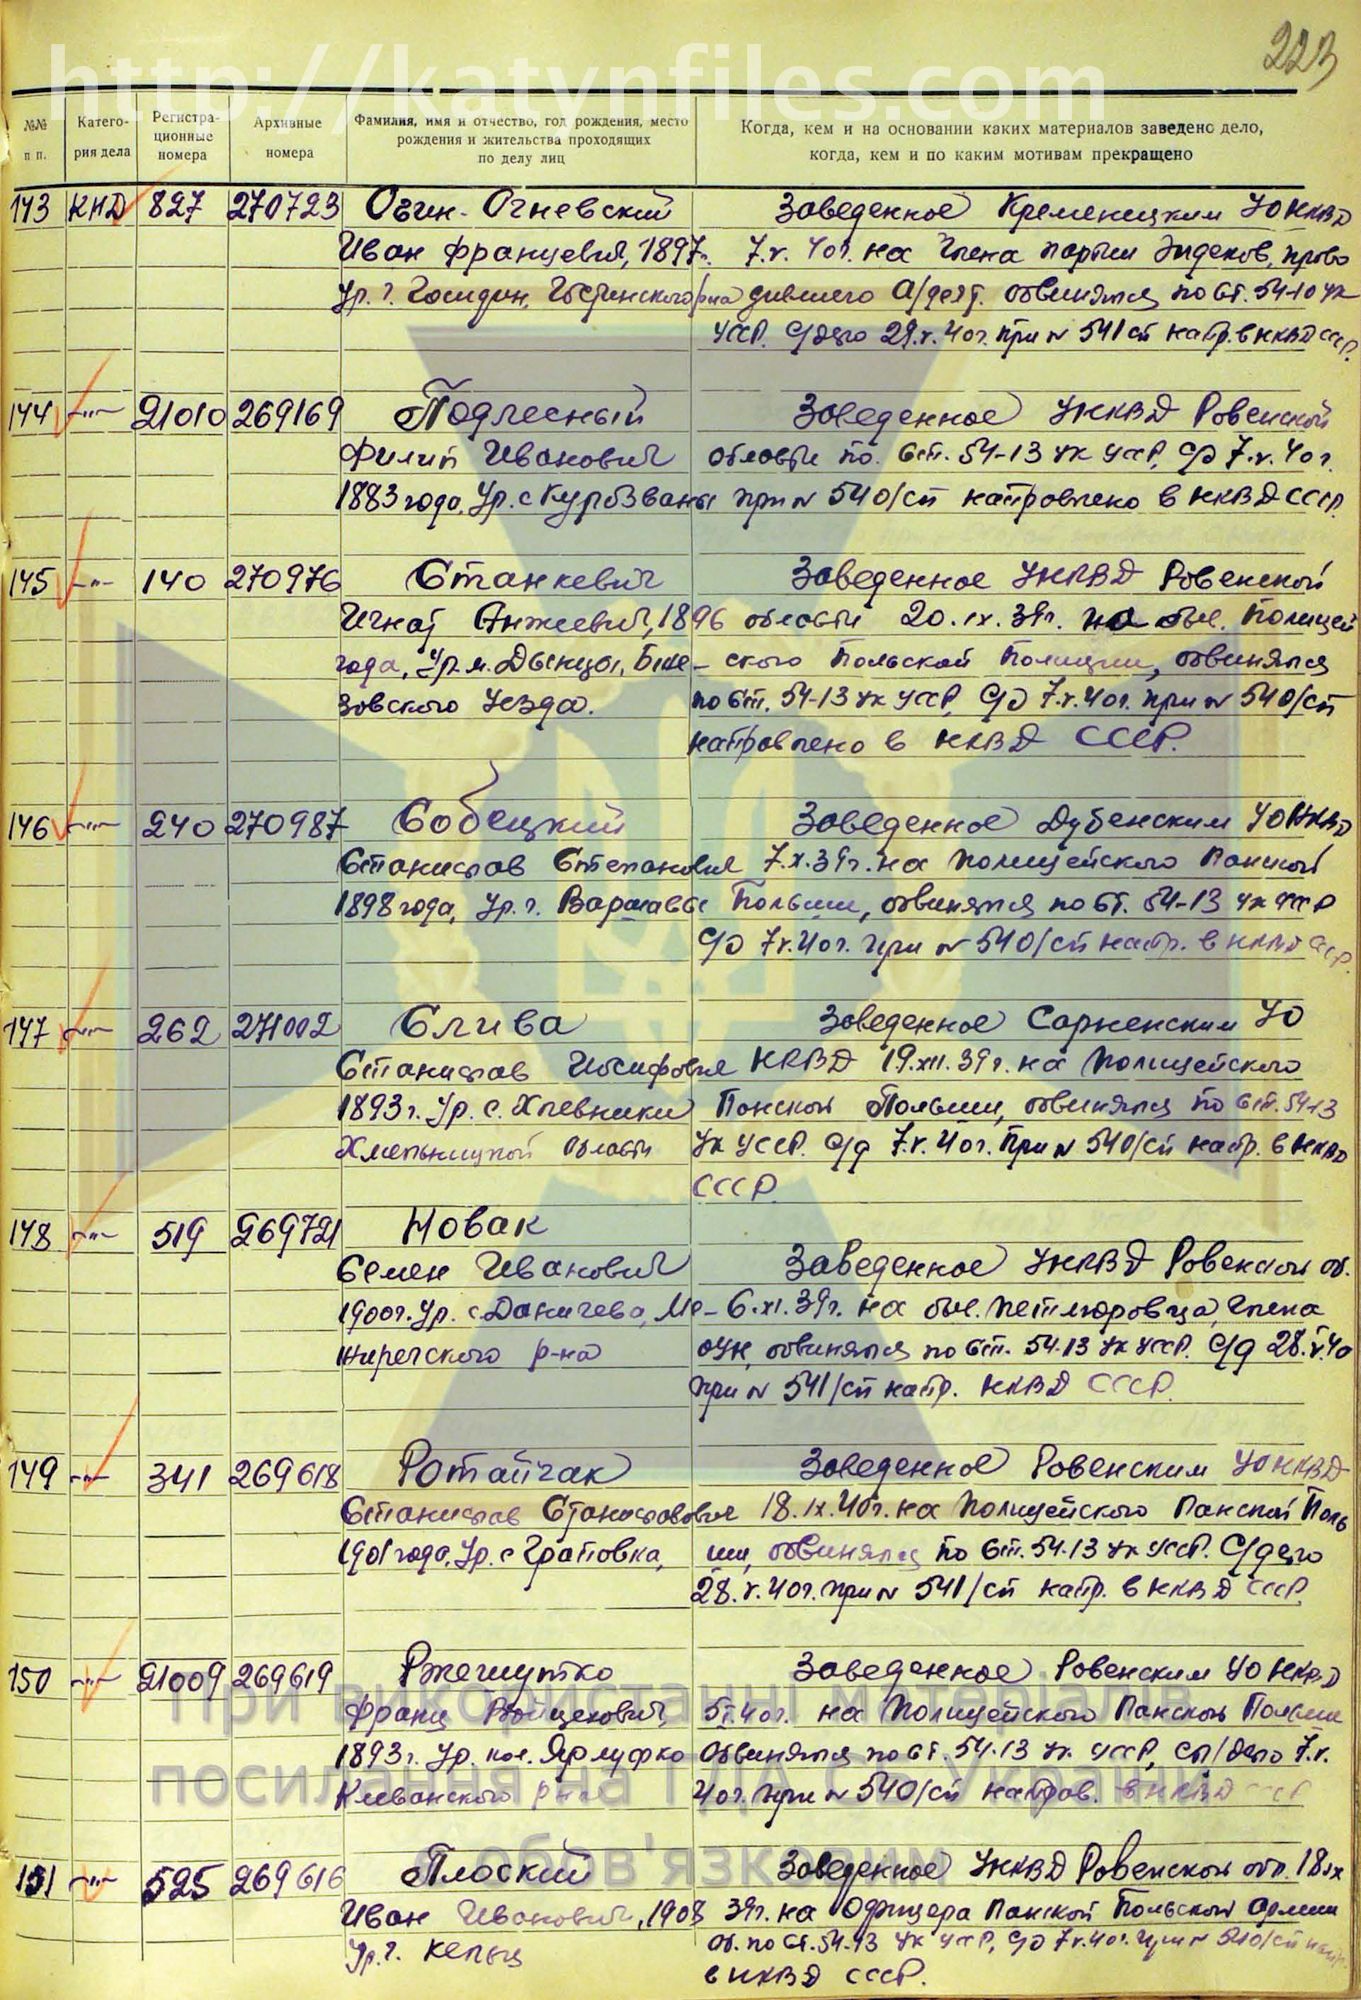 http://katynfiles.com
223
№№ п п.
Катего- рия дела
Регистра- ционные номера
Архивные номера
Фамилия, имя и отчество, год рождения, место рождения и жительства проходящих по делу лиц
Когда, кем и на основании каких материалов заведено дело, когда, кем и по каким мотивам прекращено
143 КНД 827 270723 Огин-Огневский Заведенное Кременецким УО НКВД
Иван Францевич, 1897г. 7.V.40г. на члена партии Эндеков, прово
ур. г. Гостинского р-на дившего а/деят. обвинялся по ст. 54-10 УК
УССР. С/дело 29.V.40г. при № 541/сп напр. в НКВД СССР.
144 -"- 21010 269169 Подлесный Заведенное УНКВД Ровенской
Филип Иванович области по ст. 54-13 УК УССР, с/д 7.V.40г.
1883 года, ур. с Курозваны при № 540/сп направлено в НКВД СССР.
145 -"- 140 270976 Станкевич Заведенное УНКВД Ровенской
Игнат Анжеевич, 1896 области 20.IX.39г. на быв. полицей
года, ур. м. Дынцы, ского Польской полиции, обвинялся
зовского уезда. по ст. 54-13 УК УССР, с/д 7.V.40г. при № 540/сп
направлено в НКВД СССР.
146 -"- 240 270987 Собецкий Заведенное Дубенским УО НКВД
Станислав Степанович 7.X.39г. на полицейского панской
1898 года, ур. г. Варшавы Польши, обвинялся по ст. 54-13 УК УССР
с/д 7.V.40г. при № 540/сп напр. в НКВД СССР.
147 -"- 262 271002 Слива Заведенное Сарненским УО
Станислав Иосифович НКВД 19.XII.39г. на полицейского
1893г. ур. с. Хлевники Панской Польши, обвинялся по ст. 54-13
Хмельницкой области УК УССР. с/д 7.V.40г. при № 540/сп напр. в НКВД
СССР
148 -"- 519 269721 Новак
Семен Иванович Заведенное УНКВД Ровенской об.
1900г. ур. с. Даничева, Ме- 6.XI.39г. на быв. петлюровца, члена
жиречского р-на ОУН, обвинялся по ст. 54-13 УК УССР. с/д 28.V.40
при № 541/сп напр. НКВД СССР.
149 -"- 341 269618 Ротайчак Заведенное Ровенским УО НКВД
Станислав Станиславович 18.IX.40г. на полицейского Панской Поль
1901 года, ур. с Грановка, ши, обвинялся по ст. 54-13 УК УССР. С/дело
28.V.40г. при № 541/сп напр. в НКВД СССР.
150 -"- 21009 269619 Ржешутко Заведенное Ровенским УО НКВД
Франц Войцехович, на полицейского Панской Польши
1893г. ур. кол. Ярлуфко обвинялся по ст. 54-13 УК УССР, сл/дело 7.V.
Клеванского р-на 40г. при № 540/сп направ. в НКВД СССР
При використанні матеріалів
посилання на ГДА СБ України
є обов'язковим
151 -"- 525 269616 Плоский Заведенное УНКВД Ровенской обл. 18.IX
Иван Иванович, 1908 39г. на офицера Панской Польской армии
ур. г. Кельц об. по ст. 54-13 УК УССР, с/д 7.V.40г. при № 540/сп напр.
в НКВД СССР.